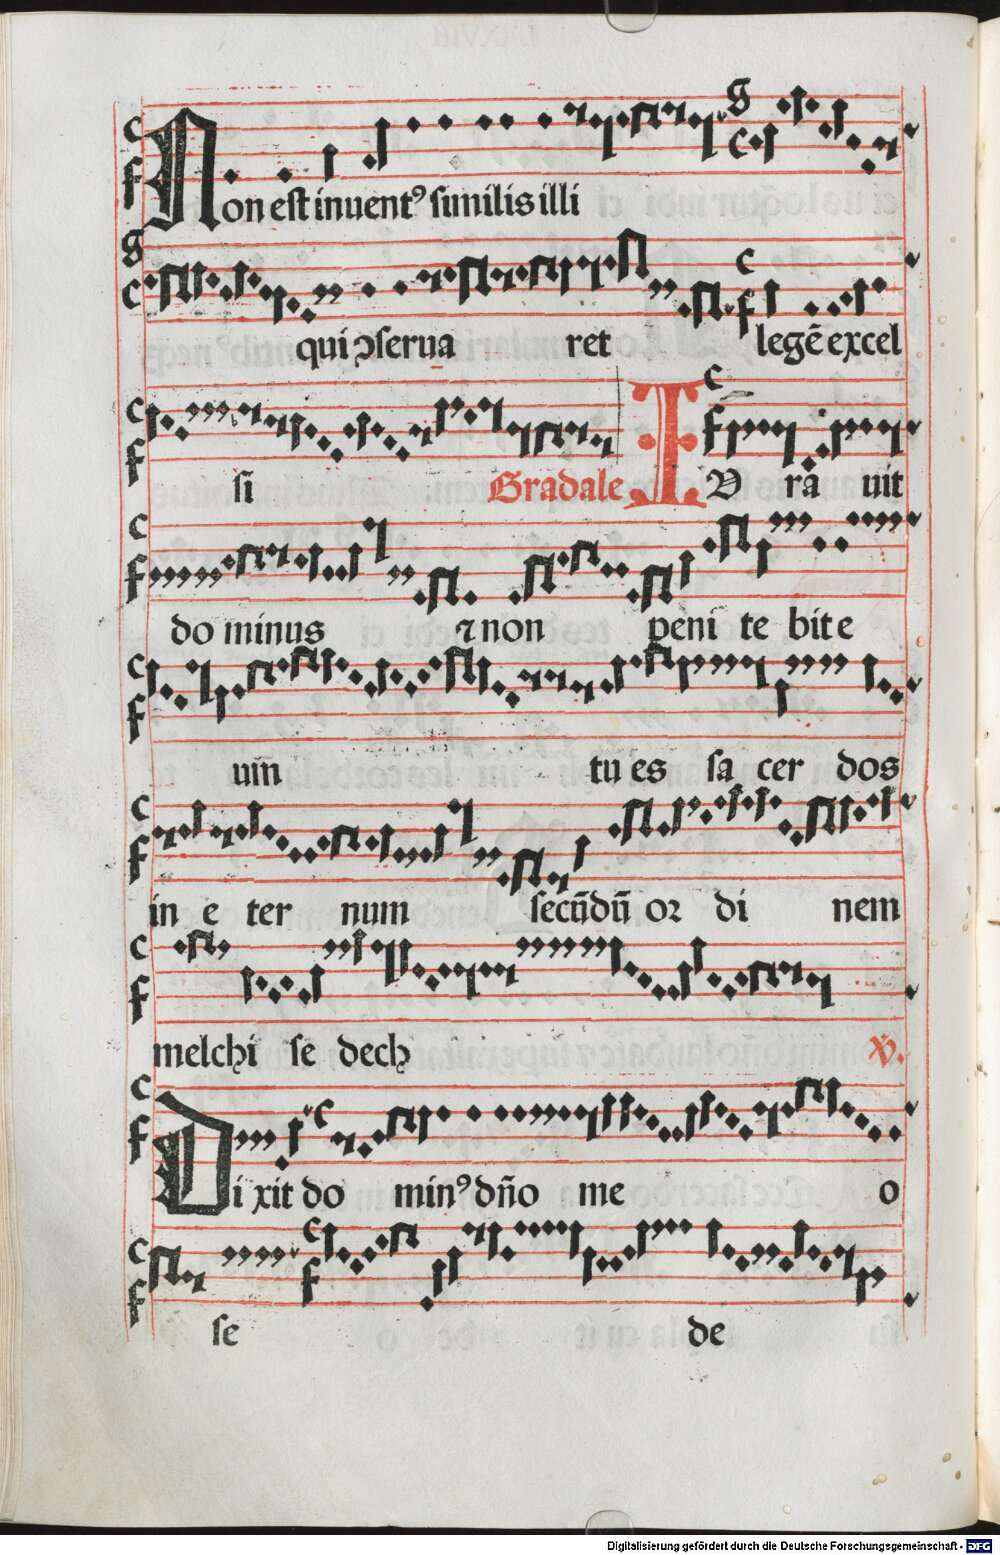 Non est inuentꝰ similis illi
qui ↄserua ret legē excel
si Gradale IV ra uit
do minus ⁊ non peni te bit e
um̄ tu es sa cer dos
in e ter num secūdū or di nem
melchi se dech ℣.
Di xit do minꝰ dn̄o me o
se de
Digitalisierung gefördert durch die Deutsche Forschungsgemeinschaft - DFG